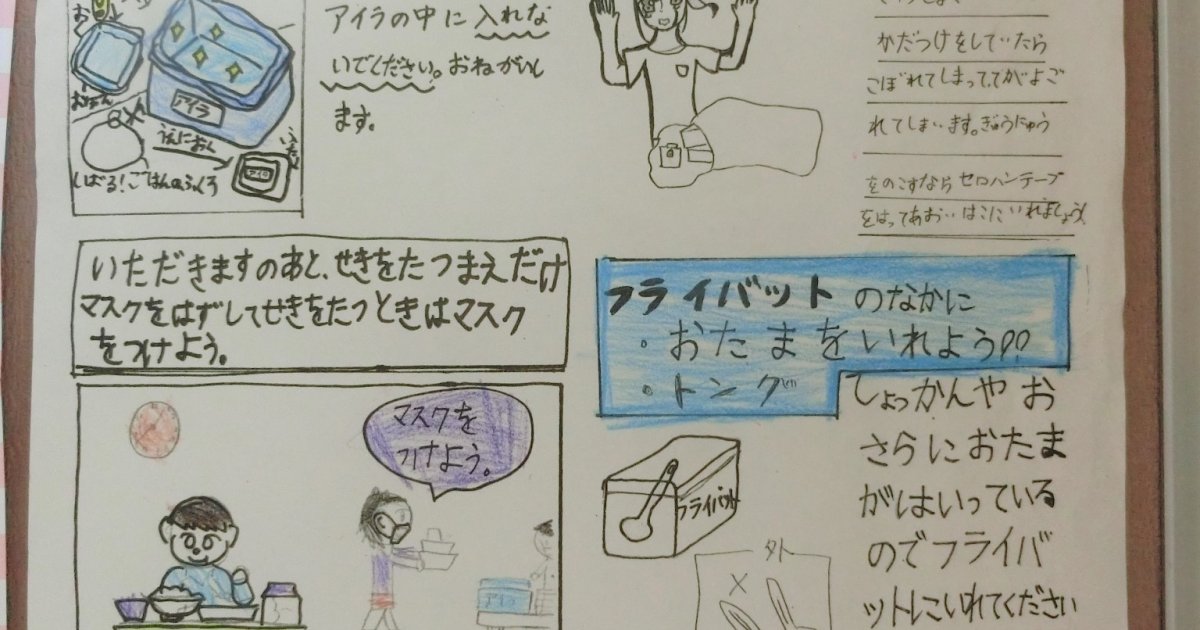 アイラの中に入れな
いでください。おねがいし
ます。
アイラ
うえにおく
しばる!ごはんのふくろ
かだつけをしていたら
こぼれてしまって、てがよご
れてしまいます。ぎゅうにゅう
をのこすならセロハンテープ
をはってあおいはこにいれましょう!
いただきますのあと、せきをたつまえだけ
マスクをはずしてせきをたつときはマスク
をつけよう。
マスクを
つけよう。
フライバットのなかに
・おたまをいれよう!!
・トング
しょっかんやお
さらにおたま
がはいっている
のでフライバ
ットにいれてください
フライバット